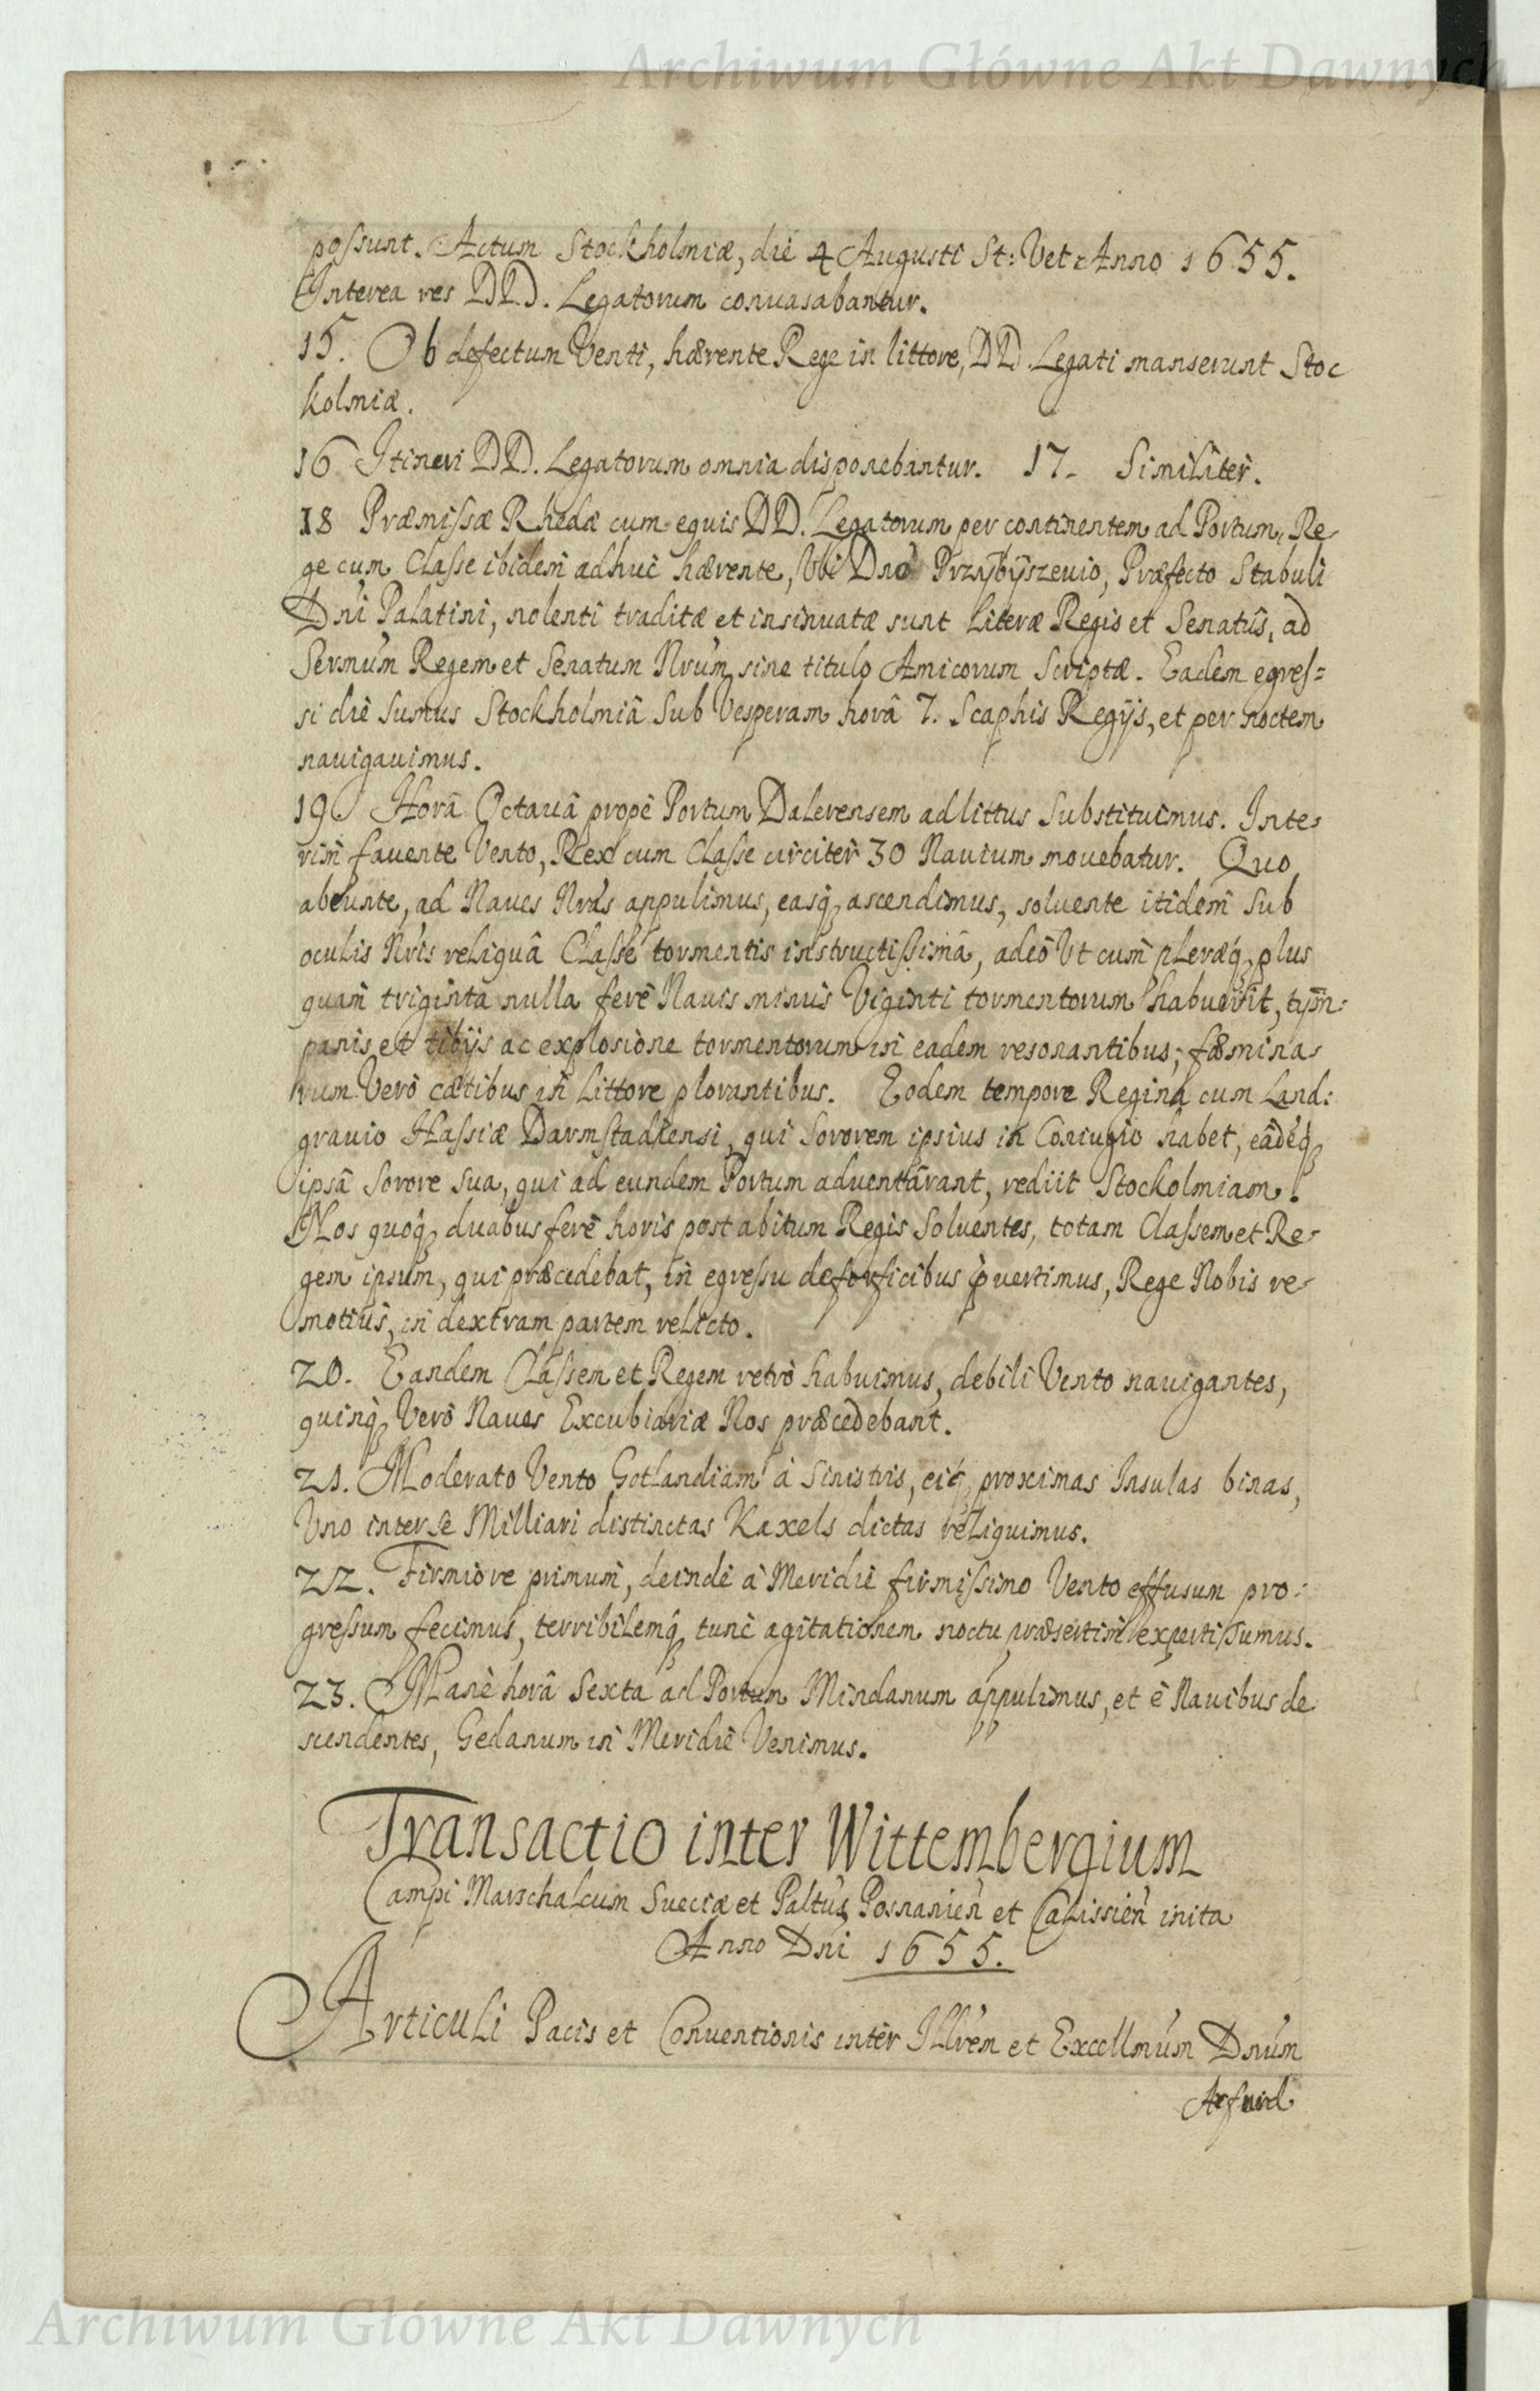 Archiwum Główne Akt Dawnych
possunt. Actum Stockholmiæ, die 4 Augusti St: Vet: Anno 1655.
Interea res DD. Legatorum conuasabantur.
15. Ob defectum Venti, hærente Rege in littore, DD. Legati manserunt Stoc
kolmiæ.
16 Itineri DD. Legatorum omnia disponebantur. 17. Similitèr.
18 Præmissæ Rhedæ cum equis DD. Legatorum per continentem ad Portum, Re-
ge cum Classe ibidem adhuc hærente, Vbi Dno Przybyszeuio, Præfecto Stabuli
Dni Palatini, nolenti traditæ et insinuatæ sunt Literæ Regis et Senatûs, ad
Sermum Regem et Senatum Nrum sine titulo Amicorum Scriptæ. Eadem egres=
si die sumus Stockholmiâ Sub Vesperam horâ 7. Scaphis Regijs, et per noctem
nauigauimus.
19 Horâ Octauâ propè Portum Dalerensem ad littus Substituimus. Inte-
rim fauente Vento, Rex cum Classe circiter 30 Nauium mouebatur. Quo
abeunte, ad Naues Nras appulimus, easq ascendimus, soluente itidem Sub
oculis Nris reliquâ Classe tormentis instructissimâ, adeò Vt cum pleræq plus
quam triginta nulla ferè Nauis minus Viginti tormentorum habuerit, tym-
panis et tibijs ac explosione tormentorum in eadem resonantibus; fæmina-
rum Verò cætibus in Littore plorantibus. Eodem tempore Regina cum Land:
grauio Hassiæ Darmstadiensi, qui Sororem ipsius in Coniugio habet, eâdeq
ipsâ Sorore sua, qui ad eundem Portum aduentârant, rediit Stockolmiam.
Nos quoq duabus ferè horis post abitum Regis Soluentes, totam Classem et Re-
gem ipsum, qui præcedebat, in egressu de forficibus puertimus, Rege Nobis re-
motius, in dextram partem relicto.
20. Eandem Classem et Regem retrò habuimus, debili Vento nauigantes,
quinq Verò Naues Excubiariæ Nos præcedebant.
21. Moderato Vento Gotlandiam à Sinistris, eiq proximas Insulas binas,
Vno inter se Milliari distinctas Kaxels dictas reliquimus.
22. Firmiore primum, deindè à Meridie firmissimo Vento effusum pro-
gressum fecimus, terribilemq tunc agitationem noctu præsertim experti sumus.
23. Manè horâ Sexta ad Portum Mindanum appulimus, et è Nauibus de
scendentes, Gedanum in Meridie Venimus.
Transactio inter Wittembergium
Campi Marschalcum Sueciæ et Paltus Posnanien et Calissien inita
Anno Dni 1655.
Articuli Pacis et Conuentionis intèr Illrem et Excellmum Dnum
Arfuid
Archiwum Główne Akt Dawnych